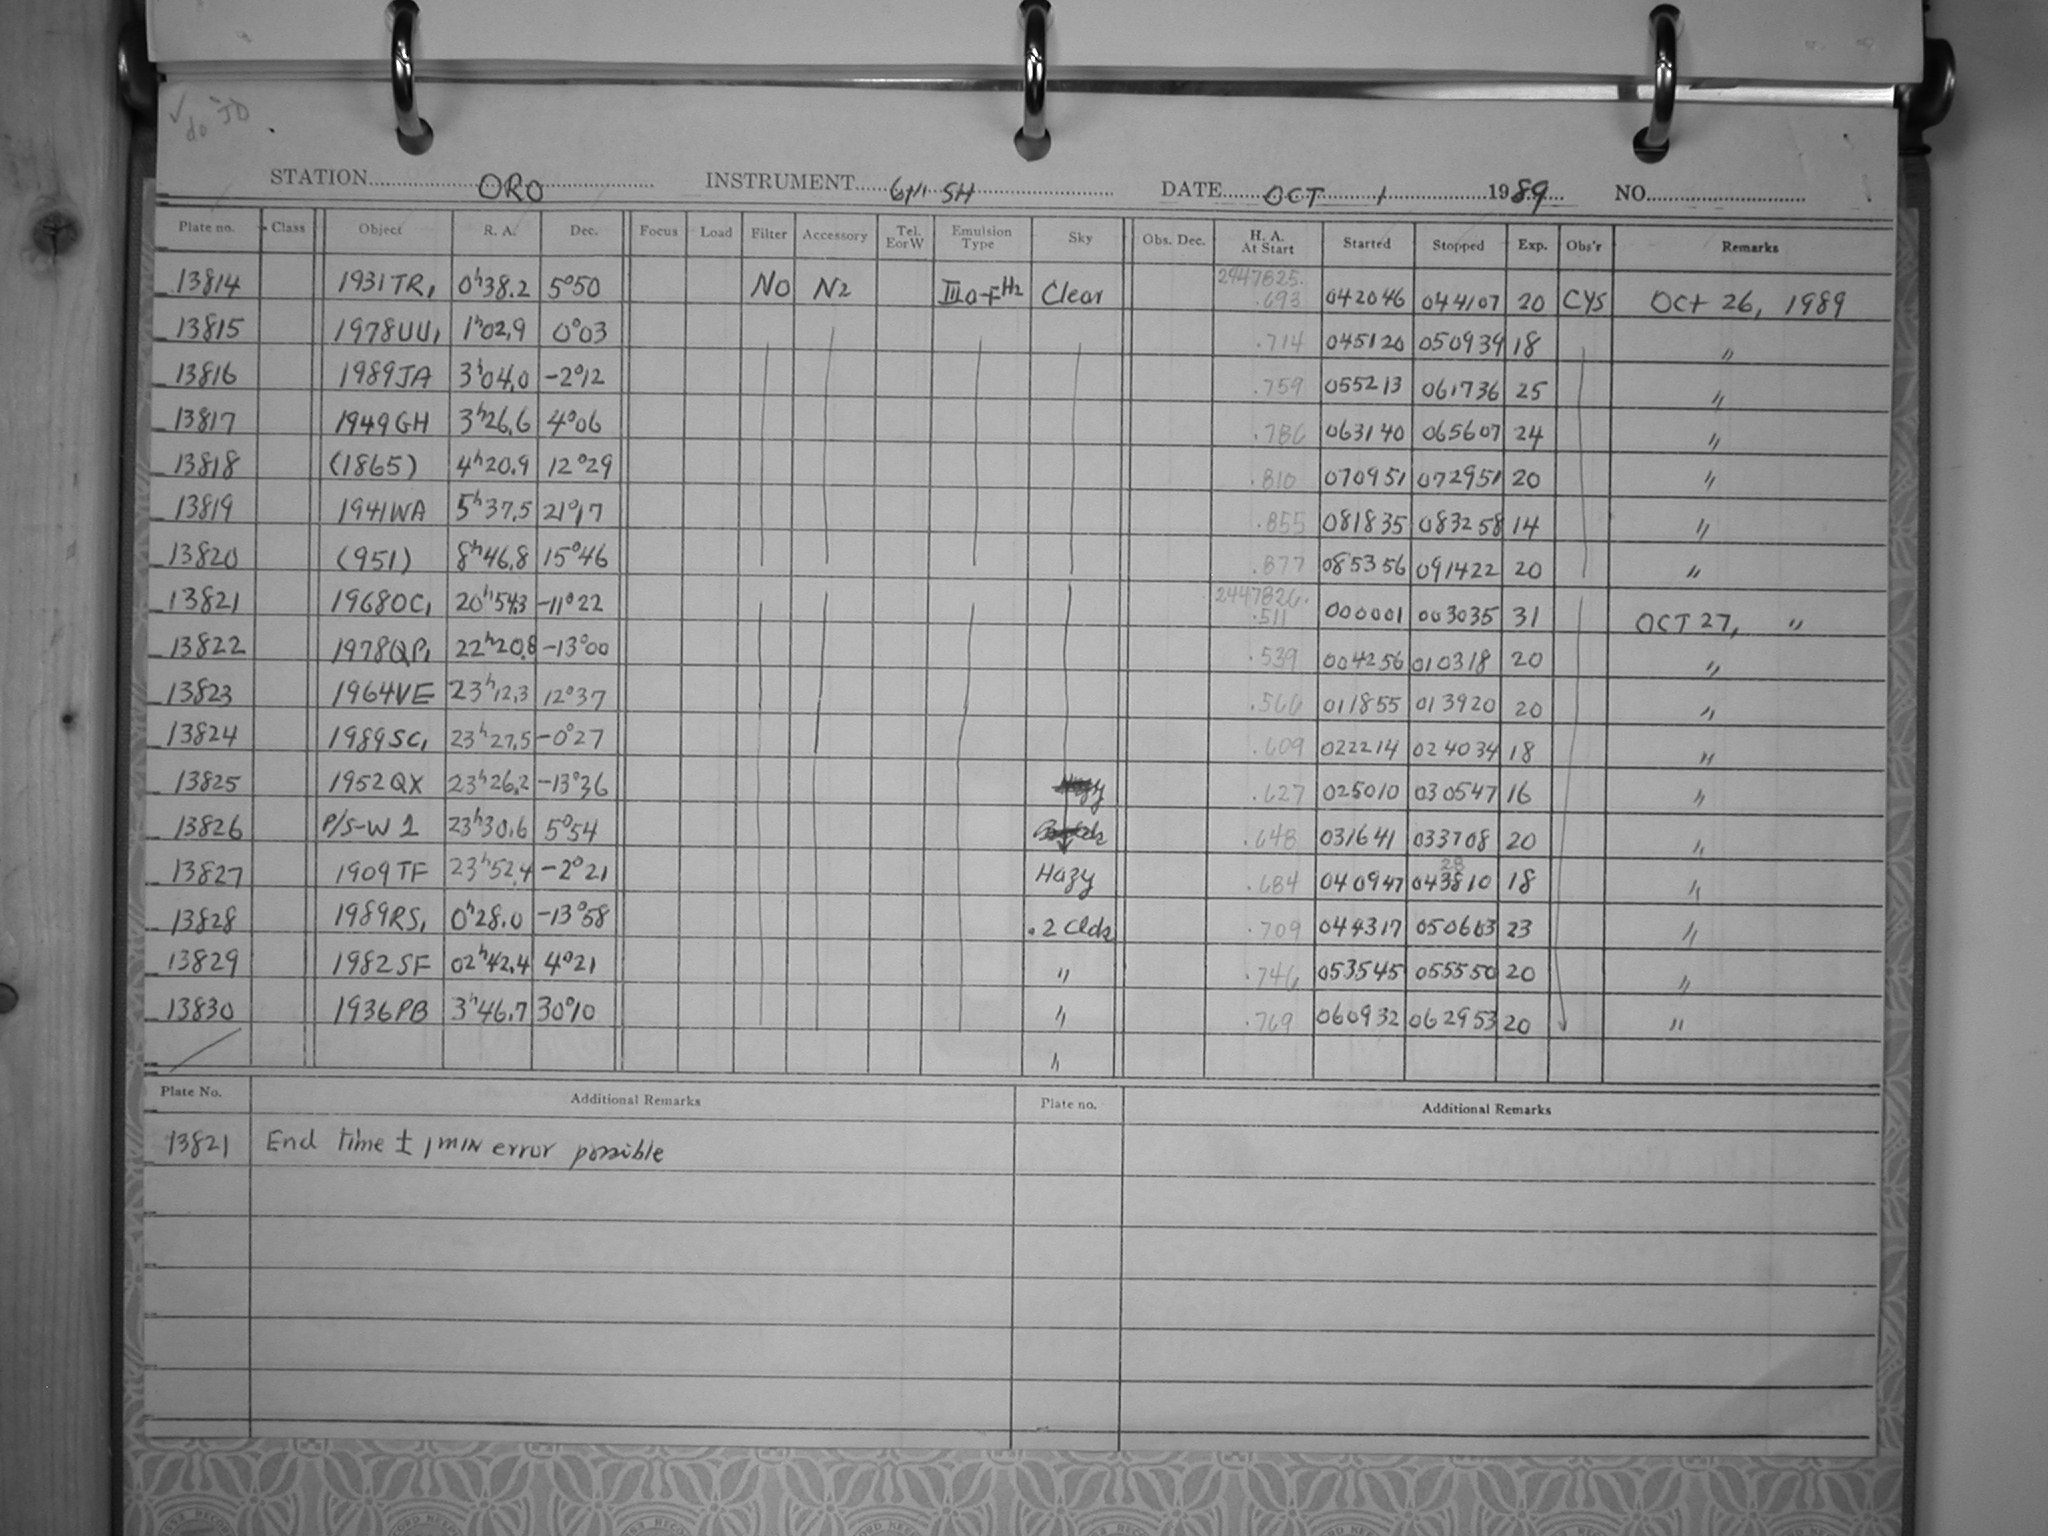 √ do JD
STATION ORO INSTRUMENT 61" SH DATE OCT 1 1989 NO.
Plate no. Class Object R. A. Dec. Focus Load Filter Accessory Tel. E or W Emulsion Type Sky Obs. Dec. H. A. At Start Started Stopped Exp. Obs'r Remarks
13814 1931TR1 0h38.2 5°50 NO N2 IIIa-F H2 Clear 2447825. .693 042046 044107 20 CYS Oct 26, 1989
13815 1978UU1 1h02.9 0°03 .714 045120 050939 18 "
13816 1989JA 3h04.0 -2°12 .759 055213 061736 25 "
13817 1949GH 3h26.6 4°06 .786 063140 065607 24 "
13818 (1865) 4h20.9 12°29 .810 070951 072951 20 "
13819 1941WA 5h37.5 21°17 .855 081835 083258 14 "
13820 (951) 8h46.8 15°46 .877 085356 091422 20 "
13821 1968OC1 20h54.3 -11°22 2447826. .511 000001 003035 31 OCT 27, "
13822 1978QP1 22h20.8 -13°00 .539 004256 010318 20 "
13823 1964VE 23h12.3 12°37 .560 011855 013920 20 "
13824 1989SC1 23h27.5 -0°27 .609 022214 024034 18 "
13825 1952QX 23h26.2 -13°36 .627 025010 030547 16 "
13826 P/S-W 1 23h30.6 5°54 .648 031641 033708 20 "
13827 1909TF 23h52.4 -2°21 Hazy .684 040947 043810 28 18 "
13828 1989RS1 0h28.0 -13°58 .2 Clds .709 044317 050613 23 "
13829 1982SF 02h42.4 4°21 " .746 053545 055550 20 "
13830 1936PB 3h46.7 30°10 " .769 060932 062953 20 "
"
Plate No. Additional Remarks Plate no. Additional Remarks
13821 End time ± 1 MIN error possible